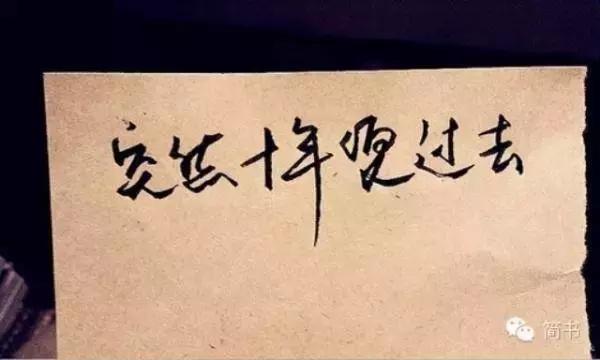 突然十年便过去
简书